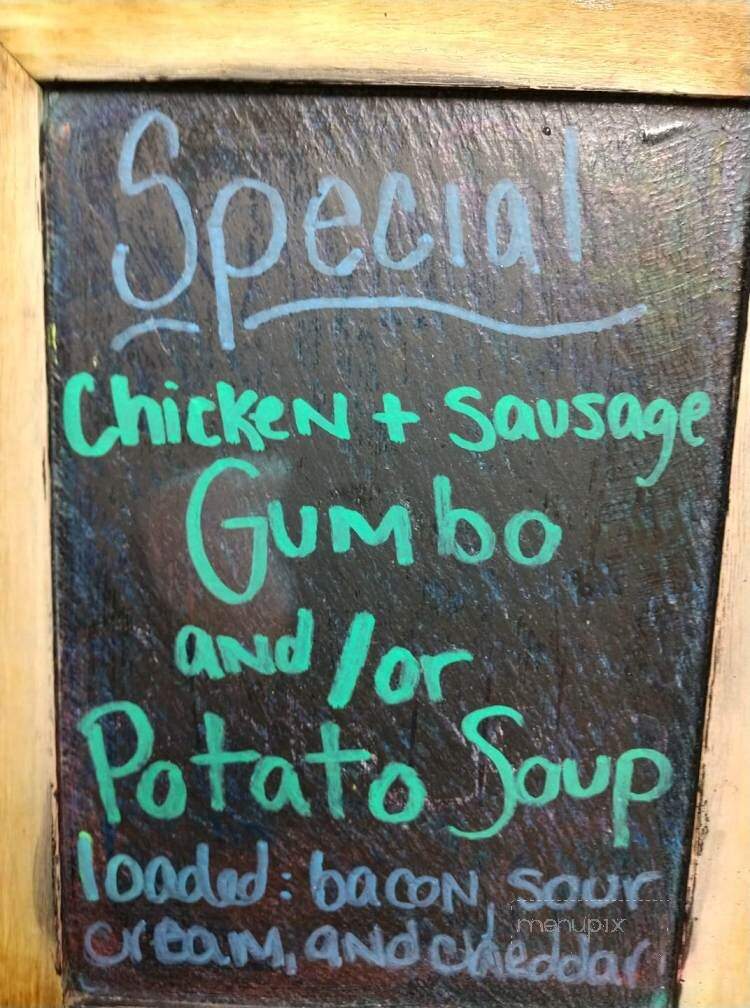 Special
Chicken + Sausage
Gumbo
and/or
Potato Soup
loaded: bacon, sour
cream, and cheddar
menupix